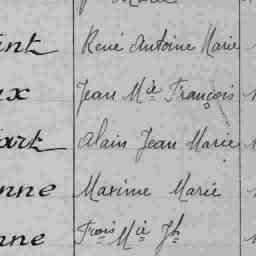 Marie
René Antoine Marie
Jean Mie François
art Alain Jean Marie
nne Maxime Marie
nne Frois Mie Jh